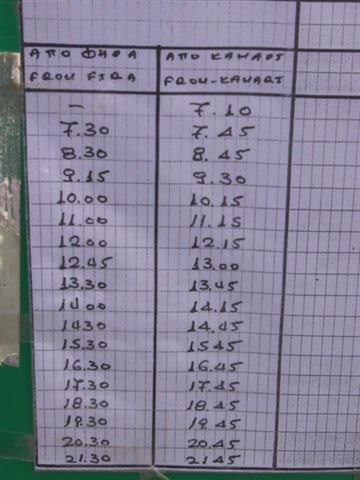 ΑΠΟ ΦΗΡΑ ΑΠΟ ΚΑΜΑΡΙ
FROM FIRA FROM-KAMARI
- 7.10
7.30 7.45
8.30 8.45
9.15 9.30
10.00 10.15
11.00 11.15
12.00 12.15
12.45 13.00
13.30 13.45
14.00 14.15
1430 14.45
15.30 1545
16.30 16.45
17.30 17.45
18.30 18.45
19.30 19.45
20.30 20.45
21.30 2145